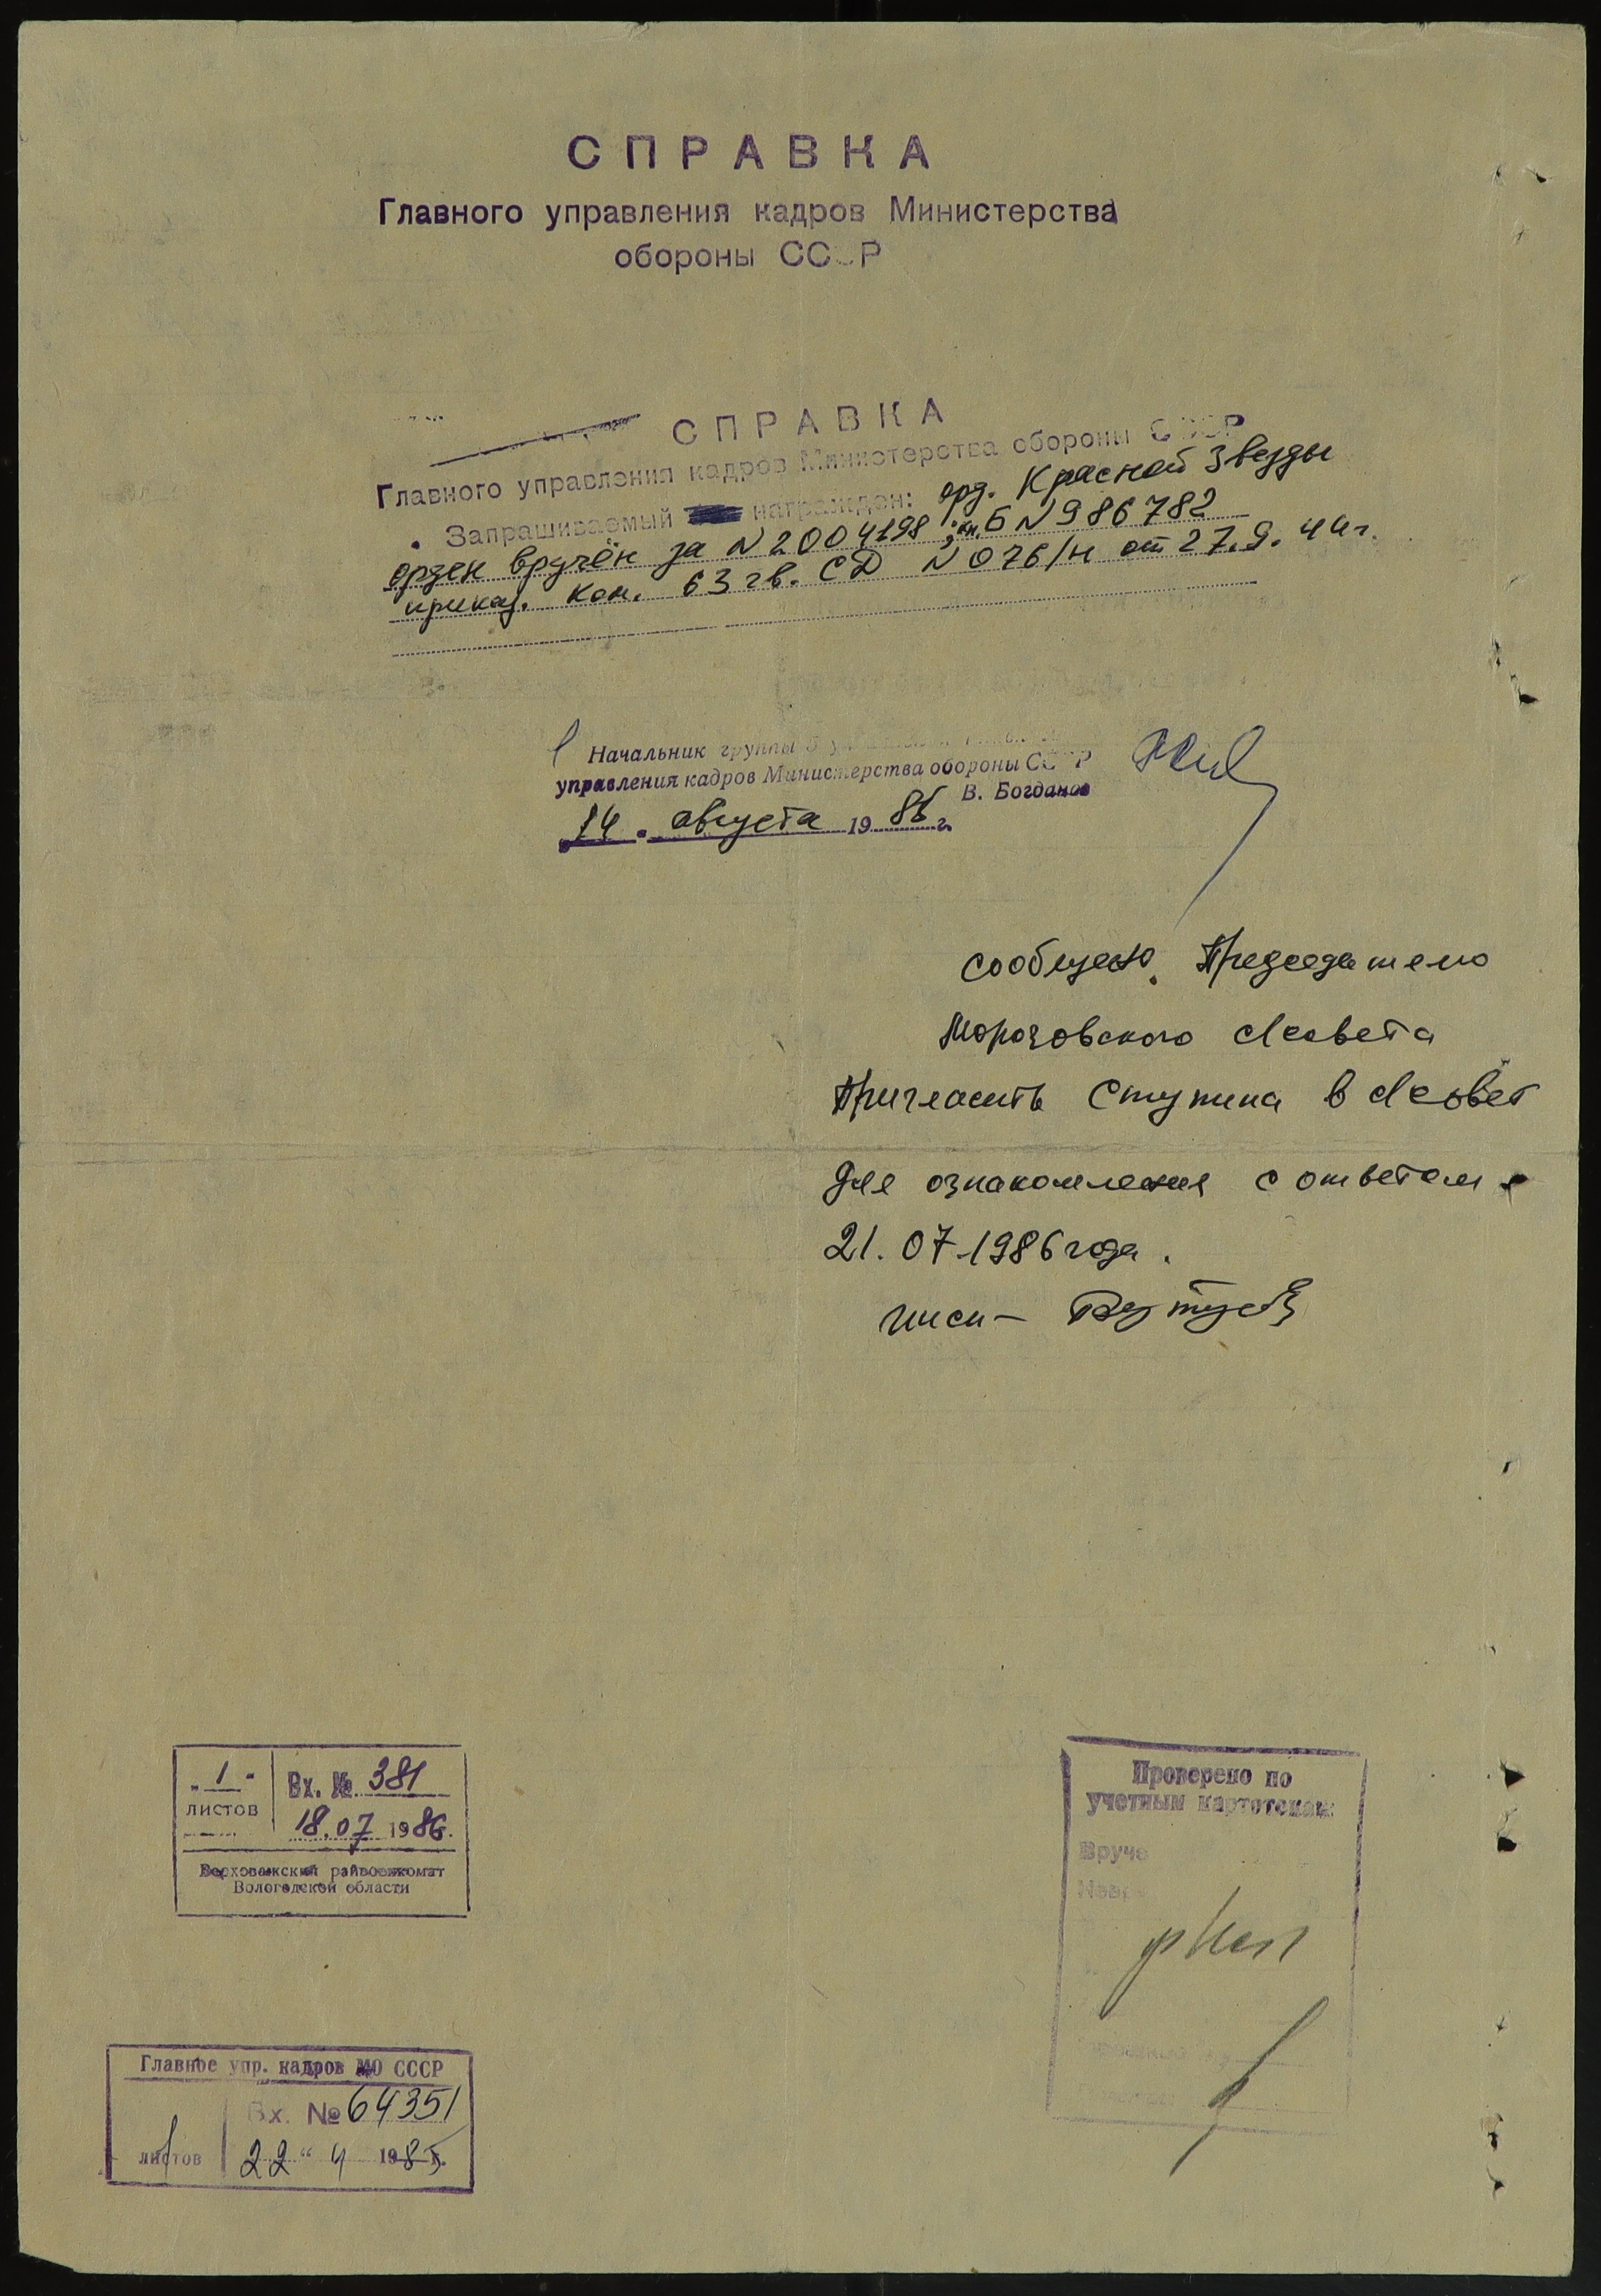 СПРАВКА
Главного управления кадров Министерства
обороны СССР
СПРАВКА
Главного управления кадров Министерства обороны СССР
Запрашиваемый награжден: орд. Красной Звезды
орден вручён за N 2004198; кн. Б N 986782
приказ. ком. 63 гв. СД N 076/н от 27.9.44г.
Начальник группы 5
управления кадров Министерства обороны СССР
В. Богданов
14 августа 19 г.
Сообщено Председателю
Морозовского с/совета
Пригласить Ступина в с/совет
для ознакомления с ответом
21.07.1986 года.
"1" Вх. № 381
листов 18.07 1986.
Верховажский райвоенкомат
Вологодской области
Проверено по
учетным картотекам
Вруче
Главное упр. кадров МО СССР
Вх. № 64351
листов 22 " 4 198 г.